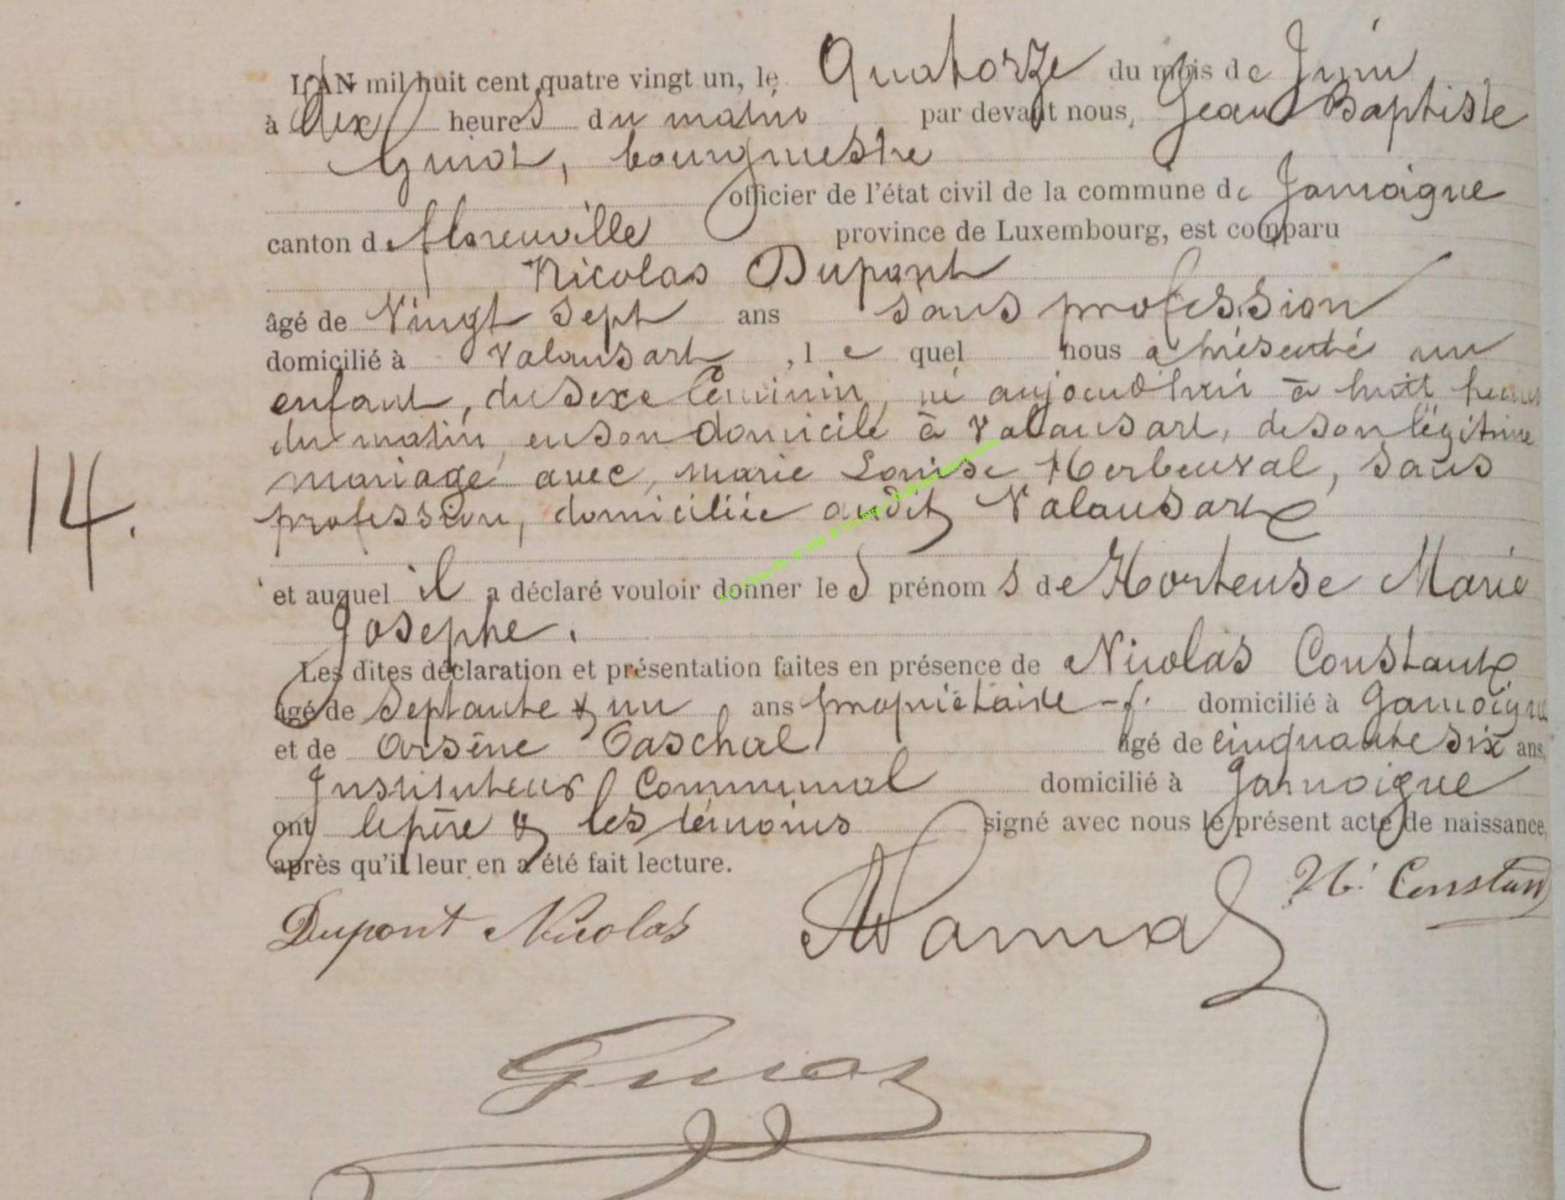 L'AN mil huit cent quatre vingt un, le Quatorze du mois de Juin
à dix heures du matin par devant nous, Jean Baptiste
Guiot, bourgmestre
officier de l'état civil de la commune de Jamoigne
canton de florenville province de Luxembourg, est comparu
Nicolas Dupont
âgé de Vingt sept ans sans profession
domicilié à Valansart, le quel nous a présenté un
enfant, du sexe féminin, né aujourd'hui à huit heures
du matin, en son domicile à Valansart, de son légitime
mariage avec, marie Louise Herbeuval, sans
profession, domiciliée audit Valansart
14.
et auquel il a déclaré vouloir donner les prénoms de Hortense Marie
Josephe.
Les dites déclaration et présentation faites en présence de Nicolas Constant
âgé de septante & un ans propriétaire domicilié à Jamoigne
et de Arsène Paschal âgé de cinquante six ans,
Instituteur Communal domicilié à Jamoigne
ont le père & les témoins signé avec nous le présent acte de naissance,
après qu'il leur en a été fait lecture.
Nb: Constant
Dupont Nicolas
Guiot